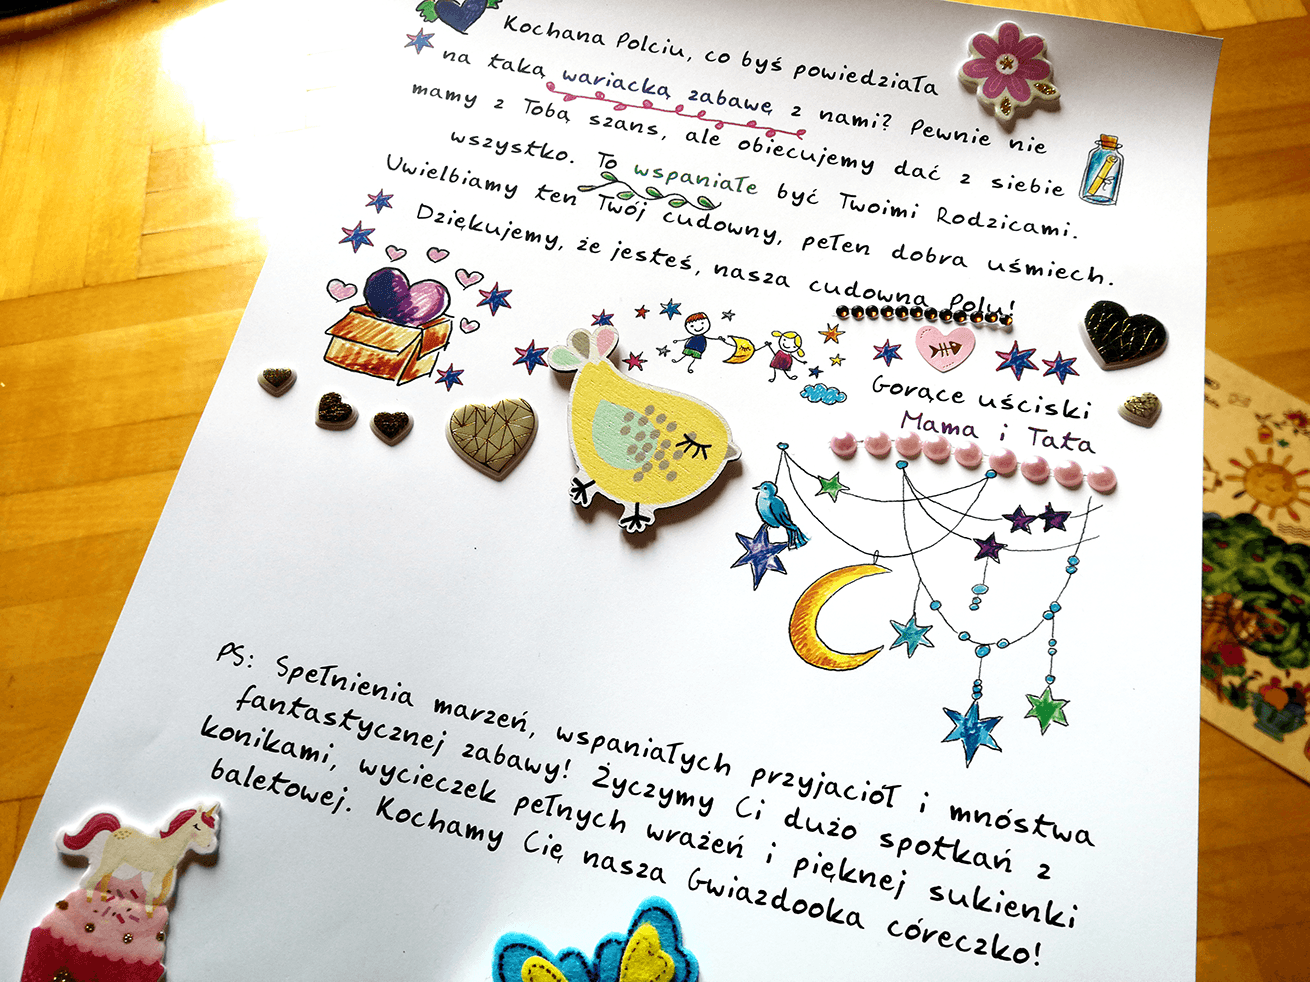 Kochana Polciu, co byś powiedziała
na taką wariacką zabawę z nami? Pewnie nie
mamy z Tobą szans, ale obiecujemy dać z siebie
wszystko. To wspaniałe być Twoimi Rodzicami.
Uwielbiamy ten Twój cudowny, pełen dobra uśmiech.
Dziękujemy, że jesteś, nasza cudowna Polu!
Gorące uściski
Mama i Tata
PS: Spełnienia marzeń, wspaniałych przyjaciół i mnóstwa
fantastycznej zabawy! Życzymy Ci dużo spotkań z
konikami, wycieczek pełnych wrażeń i pięknej sukienki
baletowej. Kochamy Cię nasza Gwiazdooka córeczko!